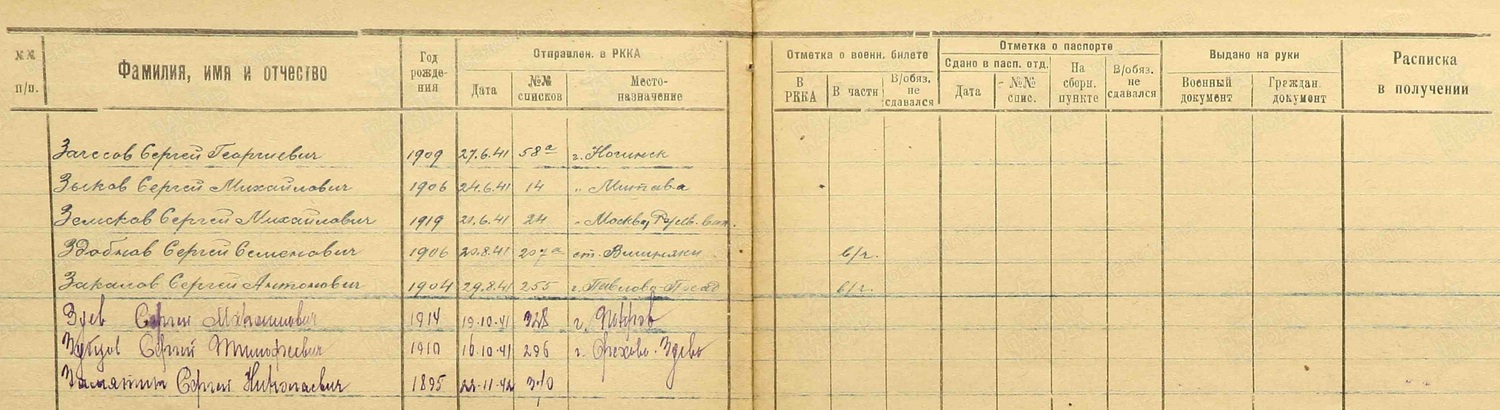 №№ п/п.
Фамилия, имя и отчество
Год рождения
Отправлен. в РККА
Дата
№№ списков
Место-назначение
Отметка о военн. билете
В РККА
В части
В/обяз. не сдавался
Отметка о паспорте
Сдано в пасп. отд.
Дата
№№ спис.
На сборн. пункте
В/обяз. не сдавался
Выдано на руки
Военный документ
Граждан. документ
Расписка в получении
Зачесов Сергей Георгиевич 1909 27.6.41 58а г. Ногинск
Зыков Сергей Михайлович 1906 24.6.41 14 " Митава
Земсков Сергей Михайлович 1919 24 " Москва
Здобнов Сергей Семенович 1906 20.8.41 207а ст. Вишняки в/ч.
Закалов Сергей Антонович 1904 29.8.41 255 г. Павлово-Посад в/ч.
Зуев Сергей 1914 19.10.41 328 г. Покров
Зубцов Сергей Тимофеевич 1910 16.10.41 296 г. Орехово-Зуево
Замятин Сергей Николаевич 1895